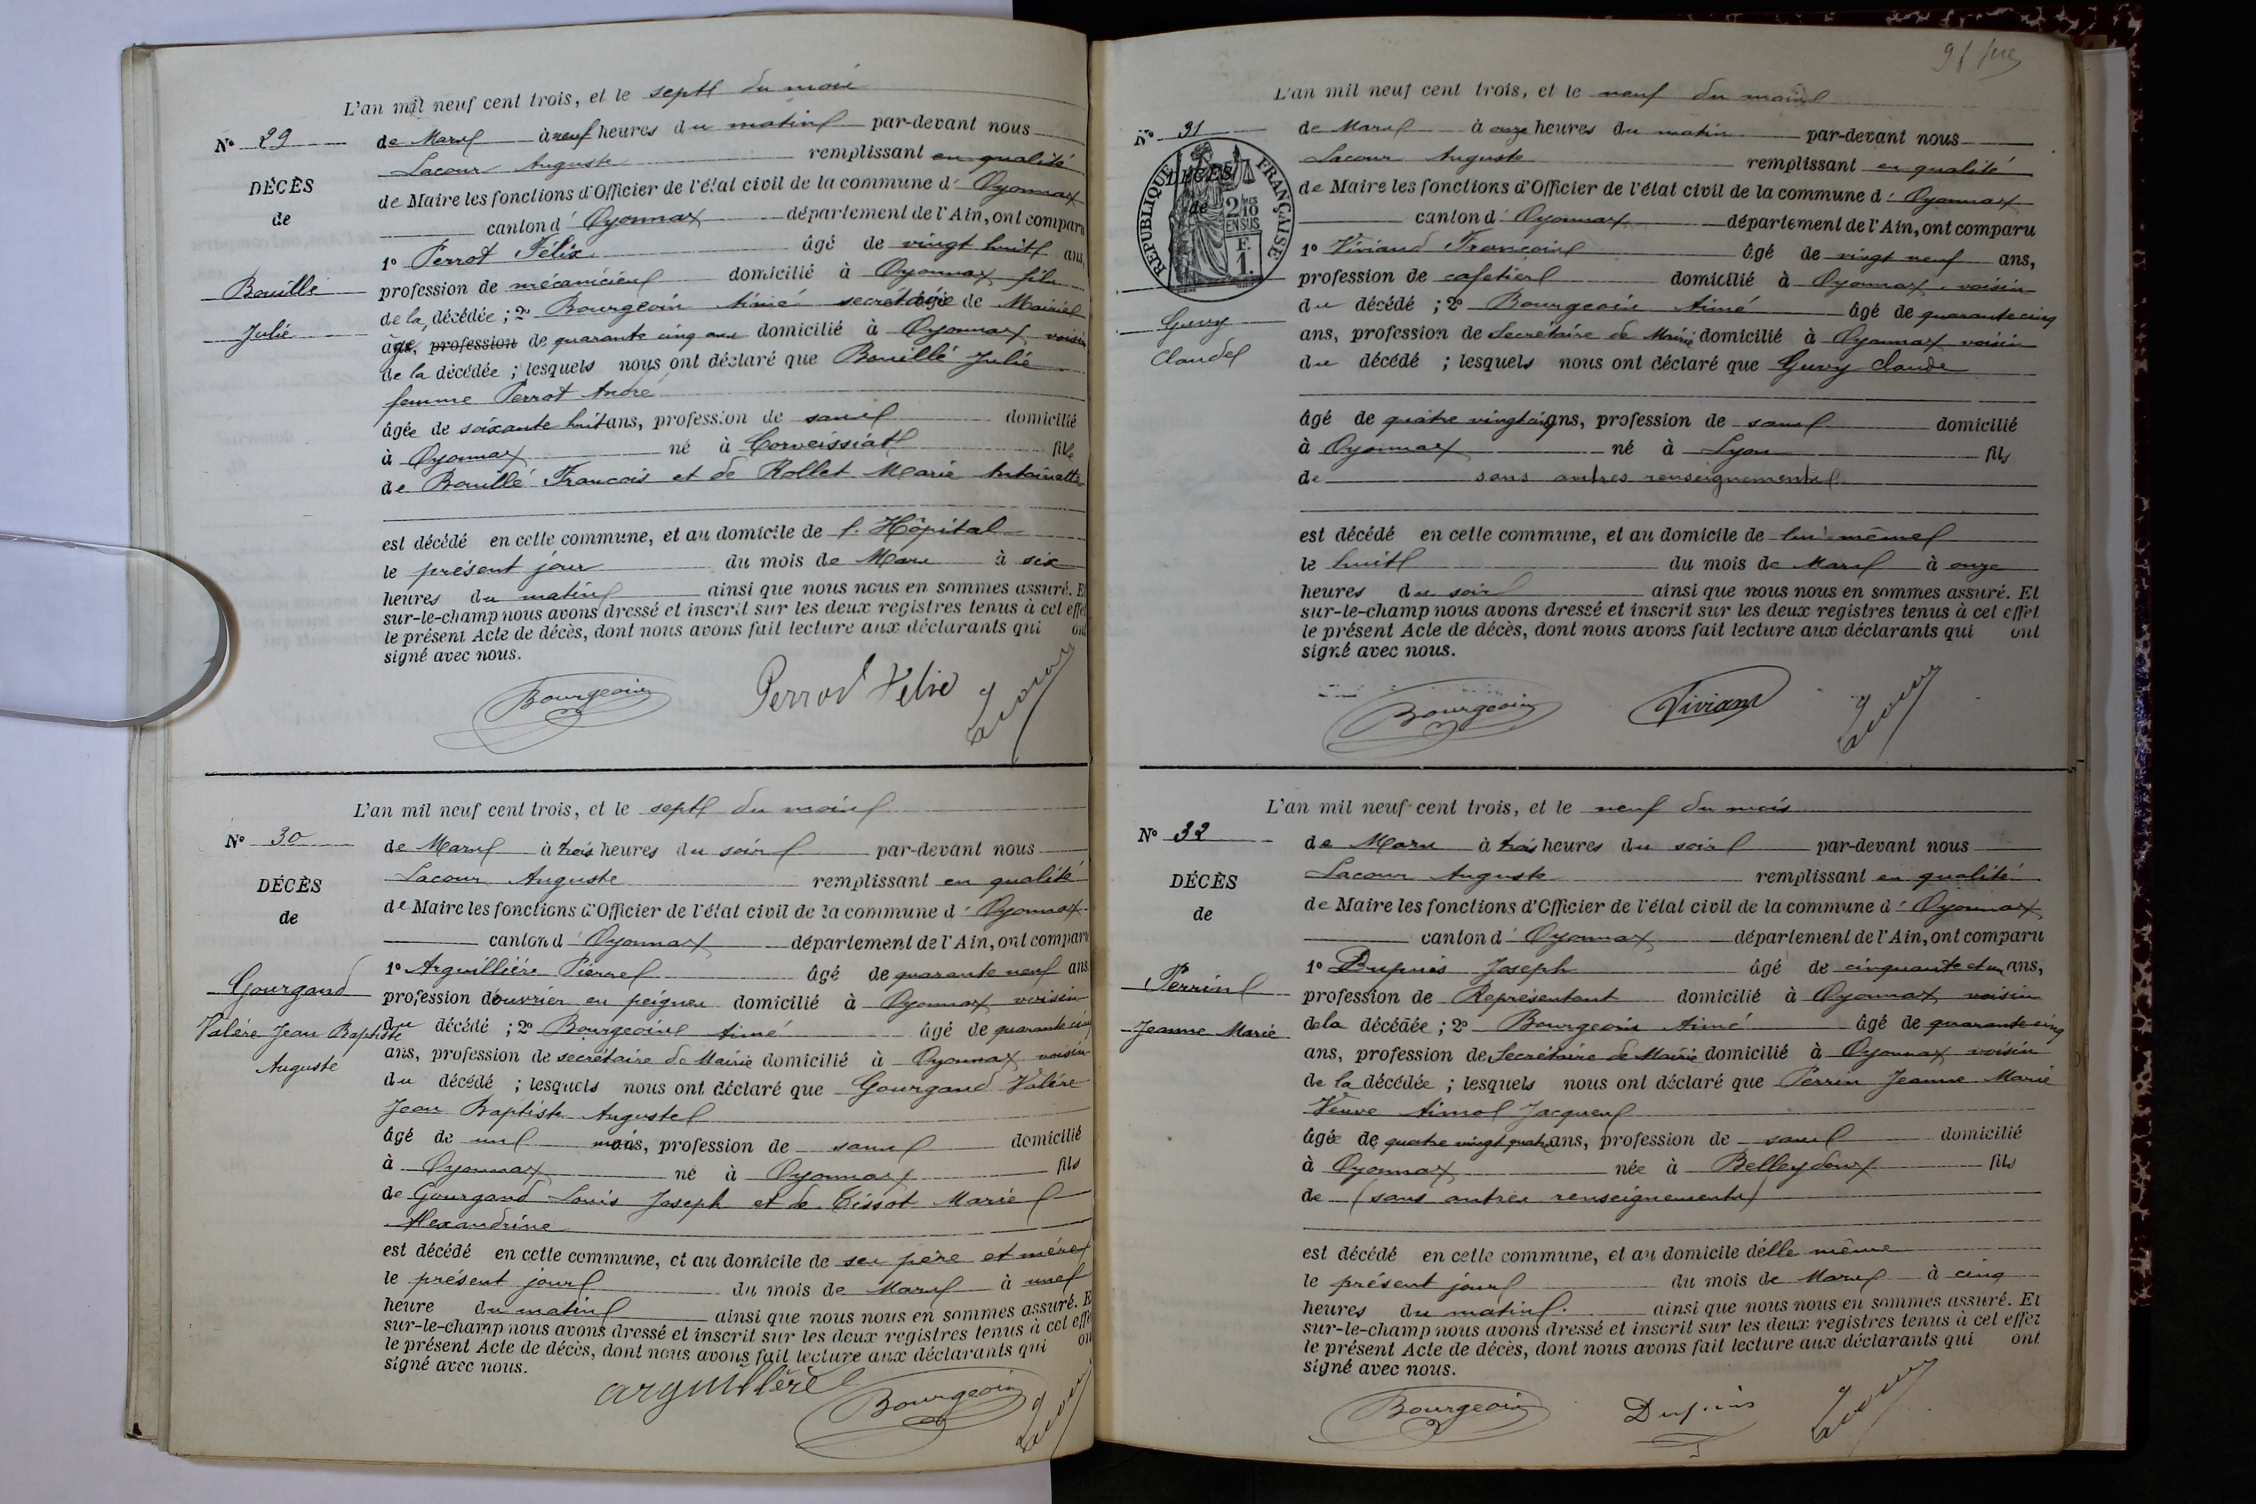 L'an mil neuf cent trois, et le sept du mois
N° 29
de Mars à neuf heures du matin par-devant nous
Lacour Auguste remplissant en qualité
DÉCÈS
de Maire les fonctions d'Officier de l'état civil de la commune d'Oyonnax
de
canton d'Oyonnax département de l'Ain, ont comparu
1° Perrot Félix âgé de vingt huit ans,
Bouillé
profession de mécanicien domicilié à Oyonnax fils
de la décédée ; 2° Bourgeoin Aimé secrétaire de Mairie
Julie
âgé, profession de quarante cinq ans domicilié à Oyonnax voisin
de la décédée ; lesquels nous ont déclaré que Bouillé Julie
femme Perrot André
âgée de soixante huit ans, profession de sans domicilié
à Oyonnax né à Corveissiat fille
de Bouillé Francois et de Rollet Marie Antoinette
est décédé en cette commune, et au domicile de l'Hôpital
le présent jour du mois de Mars à six
heures du matin ainsi que nous nous en sommes assuré. Et
sur-le-champ nous avons dressé et inscrit sur les deux registres tenus à cet effet
le présent Acte de décès, dont nous avons fait lecture aux déclarants qui ont
signé avec nous.
Bourgeoin Perrot Félix Lacour
L'an mil neuf cent trois, et le sept du mois
N° 30
de Mars à trois heures du soir par-devant nous
Lacour Auguste remplissant en qualité
DÉCÈS
de Maire les fonctions d'Officier de l'état civil de la commune d'Oyonnax
de
canton d'Oyonnax département de l'Ain, ont comparu
1° Arguillière Pierre âgé de quarante neuf ans
Gourgand
profession d'ouvrier en peignes domicilié à Oyonnax voisin
Valére Jean Baptiste
du décédé ; 2° Bourgeoin Aimé âgé de quarante cinq
Auguste
ans, profession de secrétaire de Mairie domicilié à Oyonnax voisin
du décédé ; lesquels nous ont déclaré que Gourgand Valére
Jean Baptiste Auguste
âgé de un mois, profession de sans domicilié
à Oyonnax né à Oyonnax fils
de Gourgand Louis Joseph et de Tissot Marie
Alexandrine
est décédé en cette commune, et au domicile de ses père et mère
le présent jour du mois de Mars à une
heure du matin ainsi que nous nous en sommes assuré. Et
sur-le-champ nous avons dressé et inscrit sur les deux registres tenus à cet effet
le présent Acte de décès, dont nous avons fait lecture aux déclarants qui ont
signé avec nous.
arguillère Bourgeoin Lacour
L'an mil neuf cent trois, et le neuf du mois
N° 31
de Mars à onze heures du matin par-devant nous
Lacour Auguste remplissant en qualité
DÉCÈS
de
RÉPUBLIQUE FRANÇAISE
2/10 EN SUS
F. 1.
de Maire les fonctions d'Officier de l'état civil de la commune d'Oyonnax
canton d'Oyonnax département de l'Ain, ont comparu
1° Viviand François âgé de vingt neuf ans,
profession de cafetier domicilié à Oyonnax, voisin
du décédé ; 2° Bourgeoin Aimé âgé de quarante cinq
Guvy
ans, profession de Secrétaire de Mairie domicilié à Oyonnax voisin
Claude
du décédé ; lesquels nous ont déclaré que Guvy Claude
âgé de quatre vingt ans, profession de sans domicilié
à Oyonnax né à Lyon fils
de sans autres renseignements
est décédé en cette commune, et au domicile de lui-même
le huit du mois de Mars à onze
heures du soir ainsi que nous nous en sommes assuré. Et
sur-le-champ nous avons dressé et inscrit sur les deux registres tenus à cet effet
le présent Acte de décès, dont nous avons fait lecture aux déclarants qui ont
signé avec nous.
Bourgeoin Viviand Lacour
L'an mil neuf cent trois, et le neuf du mois
N° 32
de Mars à trois heures du soir par-devant nous
Lacour Auguste remplissant en qualité
DÉCÈS
de Maire les fonctions d'Officier de l'état civil de la commune d'Oyonnax
de
canton d'Oyonnax département de l'Ain, ont comparu
1° Dupuis Joseph âgé de cinquante et un ans,
Perrin
profession de Représentant domicilié à Oyonnax voisin
Jeanne Marie
de la décédée ; 2° Bourgeoin Aimé âgé de quarante cinq
ans, profession de Secrétaire de Mairie domicilié à Oyonnax voisin
de la décédée ; lesquels nous ont déclaré que Perrin Jeanne Marie
Veuve Aimol Jacques
âgée de quatre vingt quatre ans, profession de sans domicilié
à Oyonnax née à Belleydoux fils
de (sans autres renseignements)
est décédé en cette commune, et au domicile d'elle même
le présent jour du mois de Mars à cinq
heures du matin. ainsi que nous nous en sommes assuré. Et
sur-le-champ nous avons dressé et inscrit sur les deux registres tenus à cet effet
le présent Acte de décès, dont nous avons fait lecture aux déclarants qui ont
signé avec nous.
Bourgeoin Dupuis Lacour